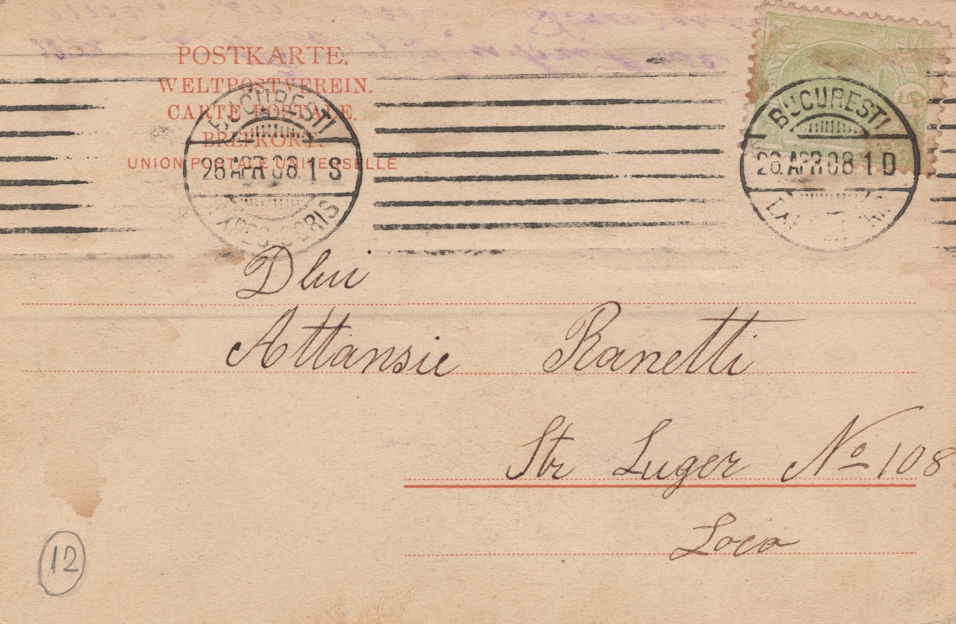 POSTKARTE.
WELTPOSTVEREIN.
CARTE POSTALE.
BREFKORT.
UNION POSTALE UNIVERSELLE
BUCURESTI
28 APR 08. 1 S
BUCURESTI
28. APR 08 1 D
Dlui
Attansie Ranetti
Str Luger No 108
Loco
12